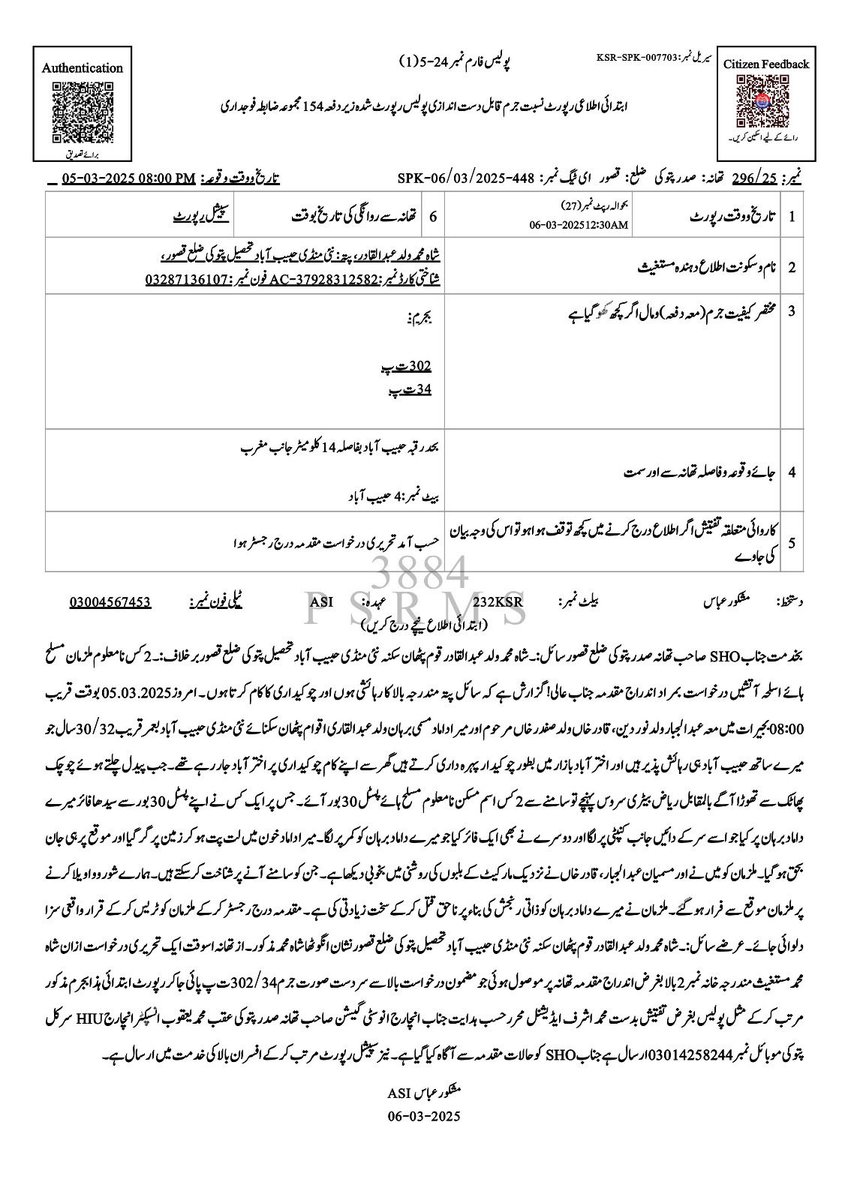 Authentication
برائے تصدیق
پولیس فارم نمبر 24-5(1)
سیریل نمبر: KSR-SPK-007703
Citizen Feedback
رائے کے لیے اسکین کریں۔
ابتدائی اطلاعی رپورٹ نسبت جرم قابل دست اندازی پولیس رپورٹ شدہ زیر دفعہ 154 مجموعہ ضابطہ فوجداری
نمبر: 296/25 تھانہ: صدر پتوکی ضلع: قصور ای ٹیگ نمبر: SPK-06/03/2025-448 تاریخ و وقت وقوعہ: 05-03-2025 08:00 PM
1 تاریخ و وقت رپورٹ بحوالہ رپٹ نمبر (27) 06-03-2025 12:30AM 6 تھانہ سے روانگی کی تاریخ بوقت سپیشل رپورٹ
2 نام و سکونت اطلاع دہندہ مستغیث شاہ محمد ولد عبدالقادر، پتہ: نئی منڈی حبیب آباد تحصیل پتوکی ضلع قصور،
شناختی کارڈ نمبر: AC-37928312582 فون نمبر: 03287136107
3 مختصر کیفیت جرم (معہ دفعہ) و مال اگر کچھ کھو گیا ہے بجرم:
302 ت پ
34 ت پ
4 جائے وقوعہ و فاصلہ تھانہ سے اور سمت بحد رقبہ حبیب آباد بفاصلہ 14 کلومیٹر جانب مغرب
بیٹ نمبر: 4 حبیب آباد
5 کاروائی متعلقہ تفتیش اگر اطلاع درج کرنے میں کچھ توقف ہوا ہو تو اس کی وجہ بیان
کی جاوے حسب آمد تحریری درخواست مقدمہ درج رجسٹر ہوا
3884
PSRMS
دستخط: مشکور عباس بیلٹ نمبر: 232KSR عہدہ: ASI ٹیلی فون نمبر: 03004567453
(ابتدائی اطلاع نیچے درج کریں)
بخدمت جناب SHO صاحب تھانہ صدر پتوکی ضلع قصور سائل:۔ شاہ محمد ولد عبدالقادر قوم پٹھان سکنہ نئی منڈی حبیب آباد تحصیل پتوکی ضلع قصور بر خلاف:۔ 2 کس نامعلوم ملزمان مسلح
ہائے اسلحہ آتشیں درخواست بمراد اندراج مقدمہ جناب عالی! گزارش ہے کہ سائل پتہ مندرجہ بالا کا رہائشی ہوں اور چوکیداری کا کام کرتا ہوں۔ امروز 05.03.2025 بوقت قریب
08:00 بجے رات میں معہ عبدالجبار ولد نور دین، قادر خاں ولد صفدر خاں مرحوم اور میرا داماد مسمی برہان ولد عبدالقاری اقوام پٹھان سکنائے نئی منڈی حبیب آباد بعمر قریب 30/32 سال جو
میرے ساتھ حبیب آباد ہی رہائش پذیر ہیں اور اختر آباد بازار میں بطور چوکیدار پہرہ داری کرتے ہیں گھر سے اپنے کام چوکیداری پر اختر آباد جا رہے تھے۔ جب پیدل چلتے ہوئے چوچک
پھاٹک سے تھوڑا آگے بالمقابل ریاض بیٹری سروس پہنچے تو سامنے سے 2 کس اسم مسکن نامعلوم مسلح ہائے پسٹل 30 بور آئے۔ جس پر ایک کس نے اپنے پسٹل 30 بور سے سیدھا فائر میرے
داماد برہان پر کیا جو اسے سر کے دائیں جانب کنپٹی پر لگا اور دوسرے نے بھی ایک فائر کیا جو میرے داماد برہان کو کمر پر لگا۔ میرا داماد خون میں لت پت ہو کر زمین پر گر گیا اور موقع پر ہی جان
بحق ہو گیا۔ ملزمان کو میں نے اور مسمیان عبدالجبار، قادر خاں نے نزدیک مارکیٹ کے بلبوں کی روشنی میں بخوبی دیکھا ہے۔ جن کو سامنے آنے پر شناخت کر سکتے ہیں۔ ہمارے شور و واویلا کرنے
پر ملزمان موقع سے فرار ہو گئے۔ ملزمان نے میرے داماد برہان کو ذاتی رنجش کی بناء پر ناحق قتل کر کے سخت زیادتی کی ہے۔ مقدمہ درج رجسٹر کر کے ملزمان کو ٹریس کر کے قرار واقعی سزا
دلوائی جائے۔ عرضے سائل:۔ شاہ محمد ولد عبدالقادر قوم پٹھان سکنہ نئی منڈی حبیب آباد تحصیل پتوکی ضلع قصور نشان انگوٹھا شاہ محمد مذکور۔ از تھانہ اسوقت ایک تحریری درخواست ازان شاہ
محمد مستغیث مندرجہ خانہ نمبر 2 بالا بغرض اندراج مقدمہ تھانہ پر موصول ہوئی جو مضمون درخواست بالا سے سردست صورت جرم 302/34 ت پ پائی جا کر رپورٹ ابتدائی ہذا بجرم مذکور
مرتب کر کے مثل پولیس بغرض تفتیش بدست محمد اشرف ایڈیشنل محرر حسب ہدایت جناب انچارج انوسٹی گیشن صاحب تھانہ صدر پتوکی عقب محمد یعقوب انسپکٹر انچارج HIU سرکل
پتوکی موبائل نمبر 03014258244 ارسال ہے جناب SHO کو حالات مقدمہ سے آگاہ کیا گیا ہے۔ نیز سپیشل رپورٹ مرتب کر کے افسران بالا کی خدمت میں ارسال ہے۔
مشکور عباس ASI
06-03-2025